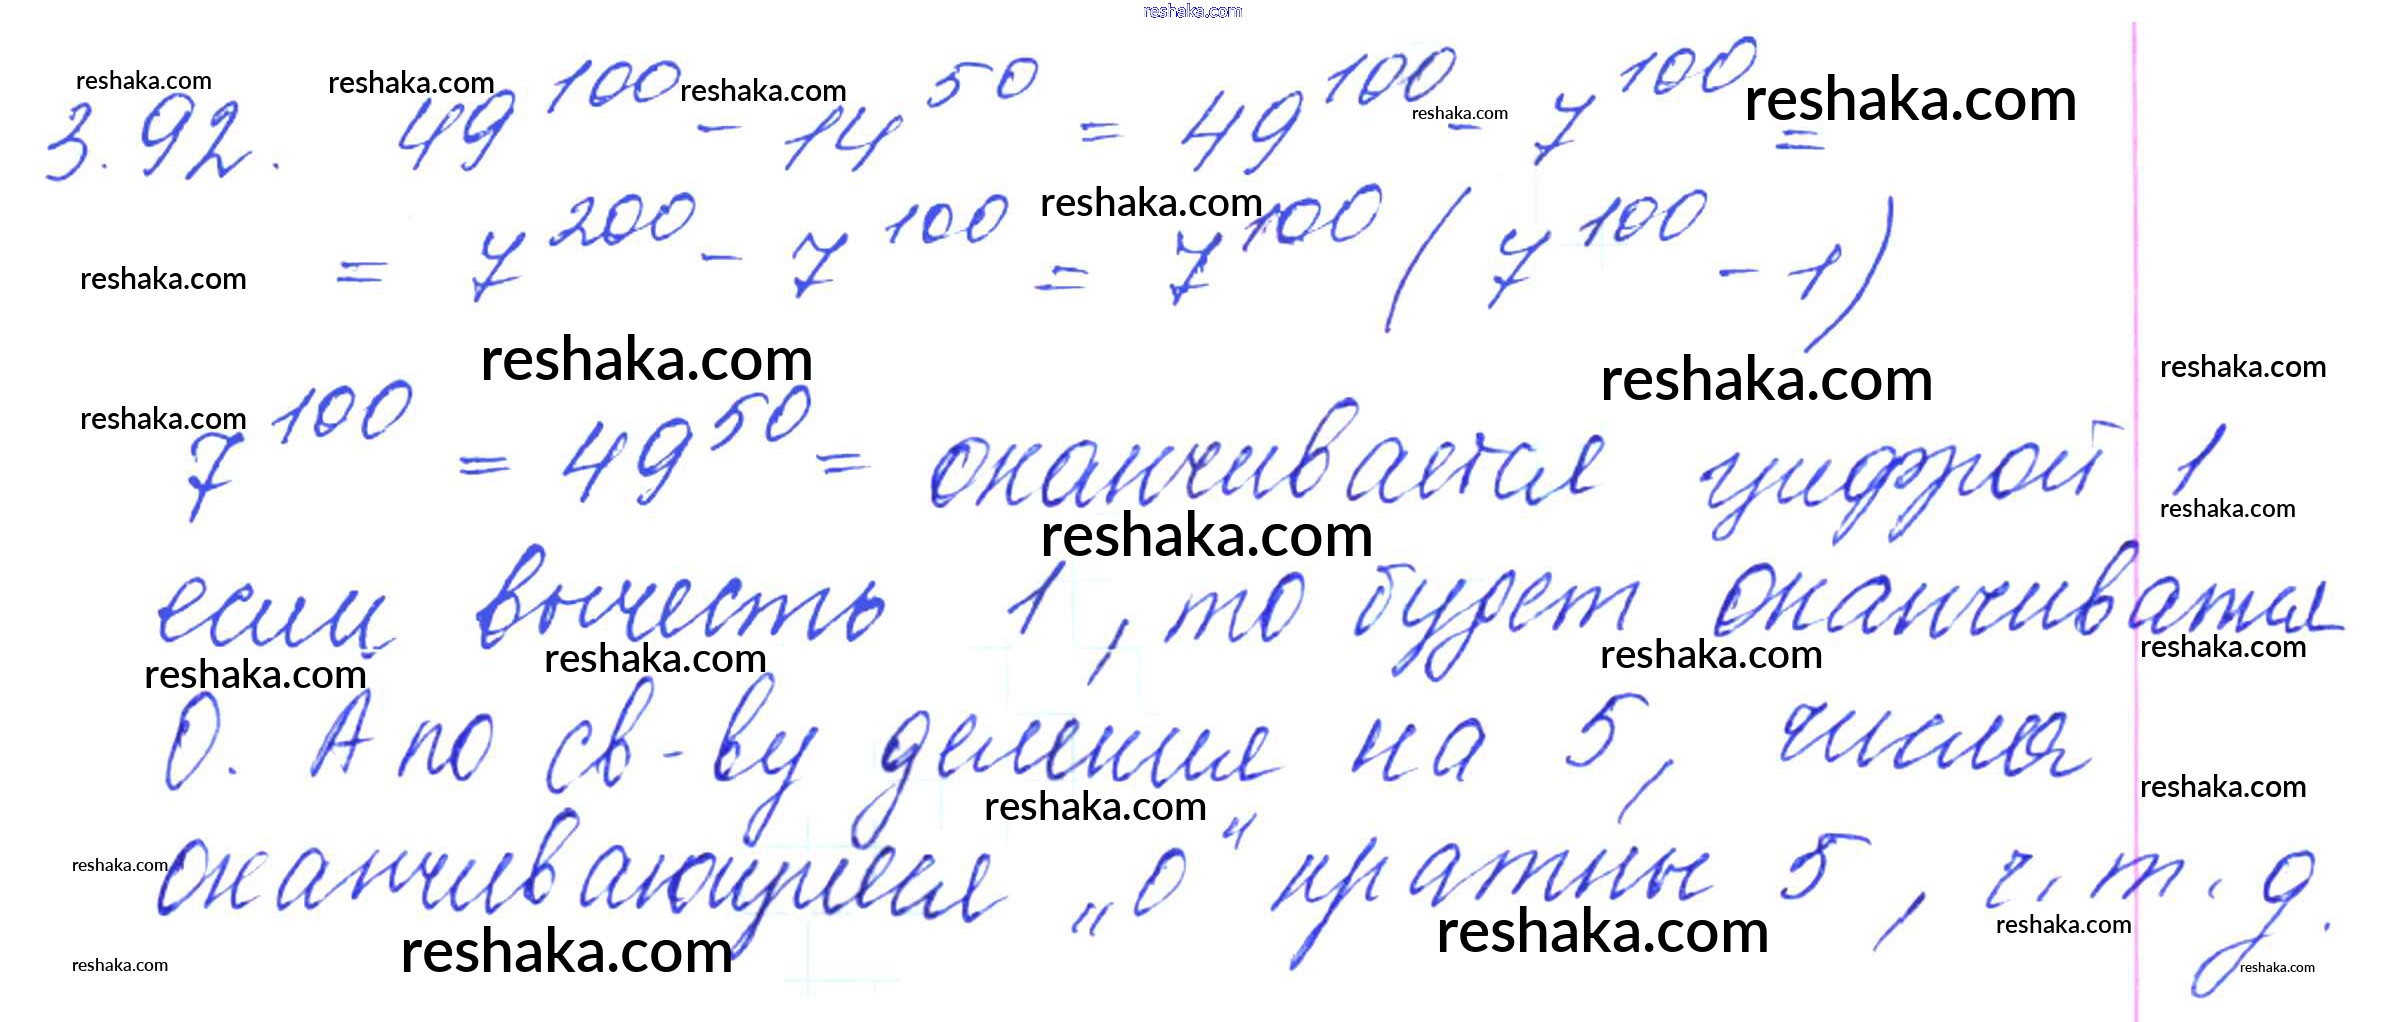 reshaka.com
reshaka.com reshaka.com reshaka.com reshaka.com reshaka.com
3.92. 49^100 - 14^50 = 49^100 - 7^100 =
reshaka.com
= 7^200 - 7^100 = 7^100 (7^100 - 1)
reshaka.com
reshaka.com reshaka.com reshaka.com
reshaka.com
7^100 = 49^50 = оканчивается цифрой 1
reshaka.com reshaka.com
если вычесть 1, то будет оканчиваться
reshaka.com reshaka.com reshaka.com reshaka.com
0. А по св-ву деления на 5, числа
reshaka.com reshaka.com
оканчивающиеся „0“ кратны 5, ч.т.д.
reshaka.com
reshaka.com reshaka.com reshaka.com
reshaka.com reshaka.com